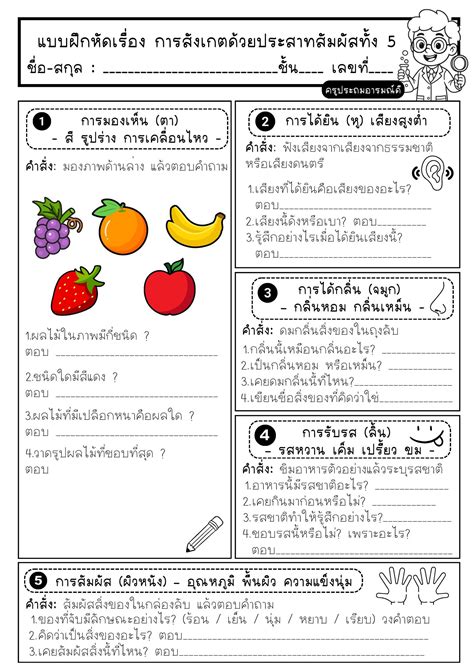 แบบฝึกหัดเรื่อง การสังเกตด้วยประสาทสัมผัสทั้ง 5
ชื่อ-สกุล : ____________________________ชั้น___ เลขที่___
ครูประถมอารมณ์ดี
1 การมองเห็น (ตา)
- สี รูปร่าง การเคลื่อนไหว -
คำสั่ง: มองภาพด้านล่าง แล้วตอบคำถาม
1.ผลไม้ในภาพมีกี่ชนิด ?
ตอบ ______________________
2.ชนิดใดมีสีแดง ?
ตอบ ______________________
3.ผลไม้ที่มีเปลือกหนาคือผลใด ?
ตอบ ______________________
4.วาดรูปผลไม้ที่ชอบที่สุด ?
ตอบ
2 การได้ยิน (หู) เสียงสูงต่ำ
คำสั่ง: ฟังเสียงจากเสียงจากธรรมชาติ
หรือเสียงดนตรี
1.เสียงที่ได้ยินคือเสียงของอะไร?
ตอบ______________________
2.เสียงนี้ดังหรือเบา? ตอบ____________
3.รู้สึกอย่างไรเมื่อได้ยินเสียงนี้?
ตอบ______________________
3 การได้กลิ่น (จมูก)
- กลิ่นหอม กลิ่นเหม็น -
คำสั่ง: ดมกลิ่นสิ่งของในถุงลับ
1.กลิ่นนี้เหมือนกลิ่นอะไร? ______________
2.เป็นกลิ่นหอม หรือเหม็น? ______________
3.เคยดมกลิ่นนี้ที่ไหน?______________
4.เขียนชื่อสิ่งของที่คิดว่าใช่____________
4 การรับรส (ลิ้น)
- รสหวาน เค็ม เปรี้ยว ขม -
คำสั่ง: ชิมอาหารตัวอย่างแล้วระบุรสชาติ
1.อาหารนี้มีรสชาติอะไร? ______________
2.เคยกินมาก่อนหรือไม่? ______________
3.รสชาติทำให้รู้สึกอย่างไร?____________
4.ชอบรสนี้หรือไม่?____________________
5 การสัมผัส (ผิวหนัง) - อุณหภูมิ พื้นผิว ความแข็งนุ่ม
คำสั่ง: สัมผัสสิ่งของในกล่องลับ แล้วตอบคำถาม
1.ของที่จับมีลักษณะอย่างไร? (ร้อน / เย็น / นุ่ม / หยาบ / เรียบ) วงคำตอบ
2.คิดว่าเป็นสิ่งของอะไร? ตอบ______________________
3.เคยสัมผัสสิ่งนี้ที่ไหน? ตอบ______________________